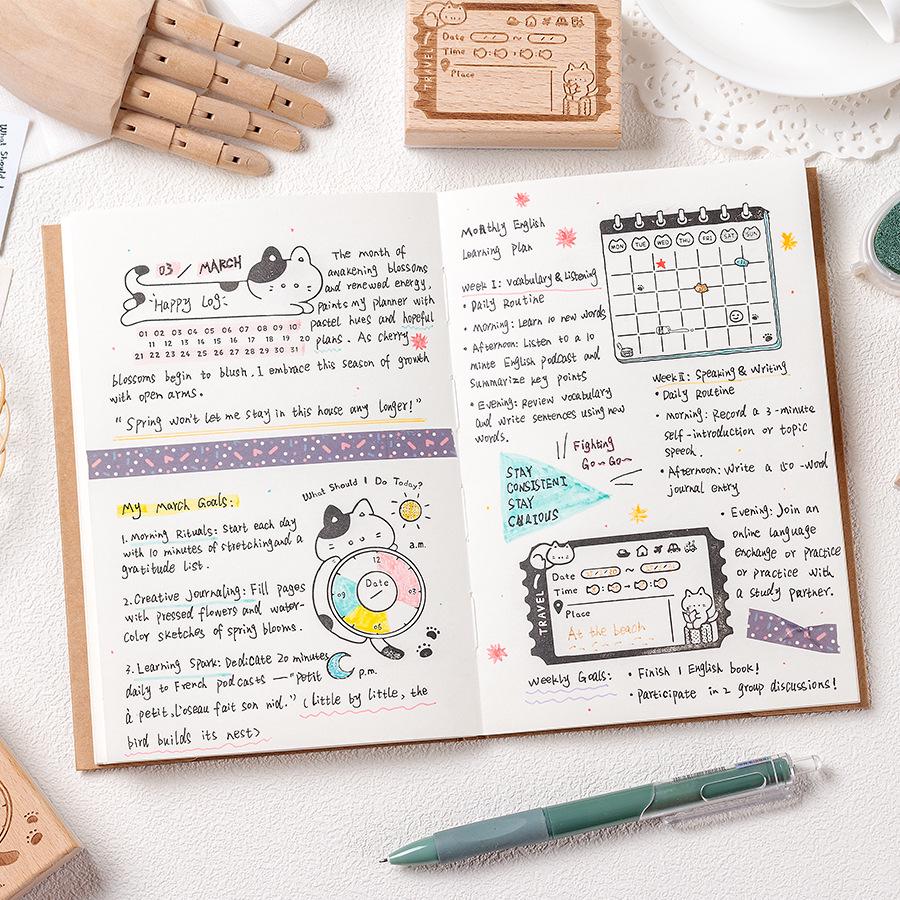 What Should I
TRAVEL
Date ~
Time
Place
03 / MARCH
Happy Log
01 02 03 04 05 06 07 08 09 10
11 12 13 14 15 16 17 18 19 20
21 22 23 24 25 26 27 28 29 30 31
The month of
awakening blossoms
and renewed energy,
paints my planner with
pastel hues and hopeful
plans. As cherry
blossoms begin to blush, I embrace this season of growth
with open arms.
"Spring won't let me stay in this house any longer!"
My March Goals:
1. Morning Rituals: Start each day
with 10 minutes of stretching and a
gratitude list.
2. Creative journaling: Fill pages
with pressed flowers and water-
color sketches of spring blooms.
3. Learning Spark: Dedicate 20 minutes
daily to French podcasts — "Petit
à petit, l'oseau fait son nid." (little by little, the
bird builds its nest>
What Should I Do Today?
a.m.
12
09 Date 03
06
p.m.
Monthly English
Learning plan
Week I: Vocabulary & Listening
• Daily Routine
• Morning: Learn 10 new words
• Afternoon: Listen to a 10
minte English podcast and
Summarize key points
• Evening: Review vocabulary
and write sentences using new
words.
MON TUE WED THU FRI SAT SUN
Week II: Speaking & Writing
• Daily Routine
• Morning: Record a 3-minute
self-introduction or topic
speech.
• Afternoon: Write a 150-word
journal entry
• Evening: Join an
online language
enchange or practice
or practice with
a study partner.
Fighting
Go~Go~
STAY
CONSISTENT
STAY
CURIOUS
TRAVEL
Date ~
Time
Place
At the beach
Weekly Goals:
• Finish 1 English book!
• participate in 2 group discussions!